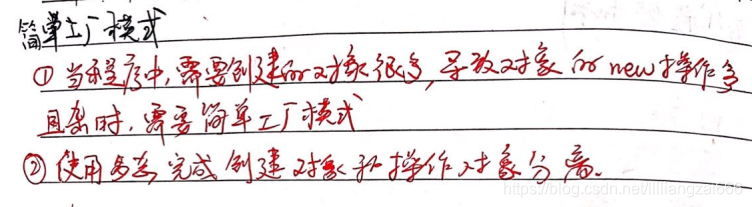 简单工厂模式
① 当程序中,需要创建的对象很多,导致对象的new操作多
且杂时,需要简单工厂模式
② 使用多态完成创建对象和操作对象分离。
https://blog.csdn.net/lllliangzai666